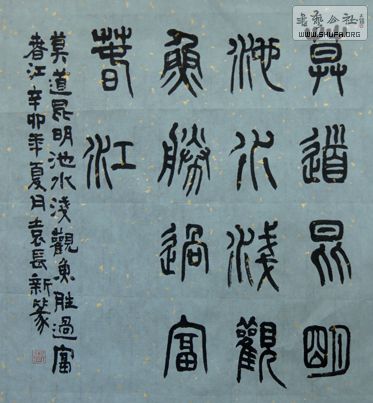 莫道昆明
池水淺觀
魚勝過富
春江
莫道昆明池水淺觀魚胜過富
春江辛卯年夏月袁長新篆
書藝公社
WWW.SHUFA.ORG